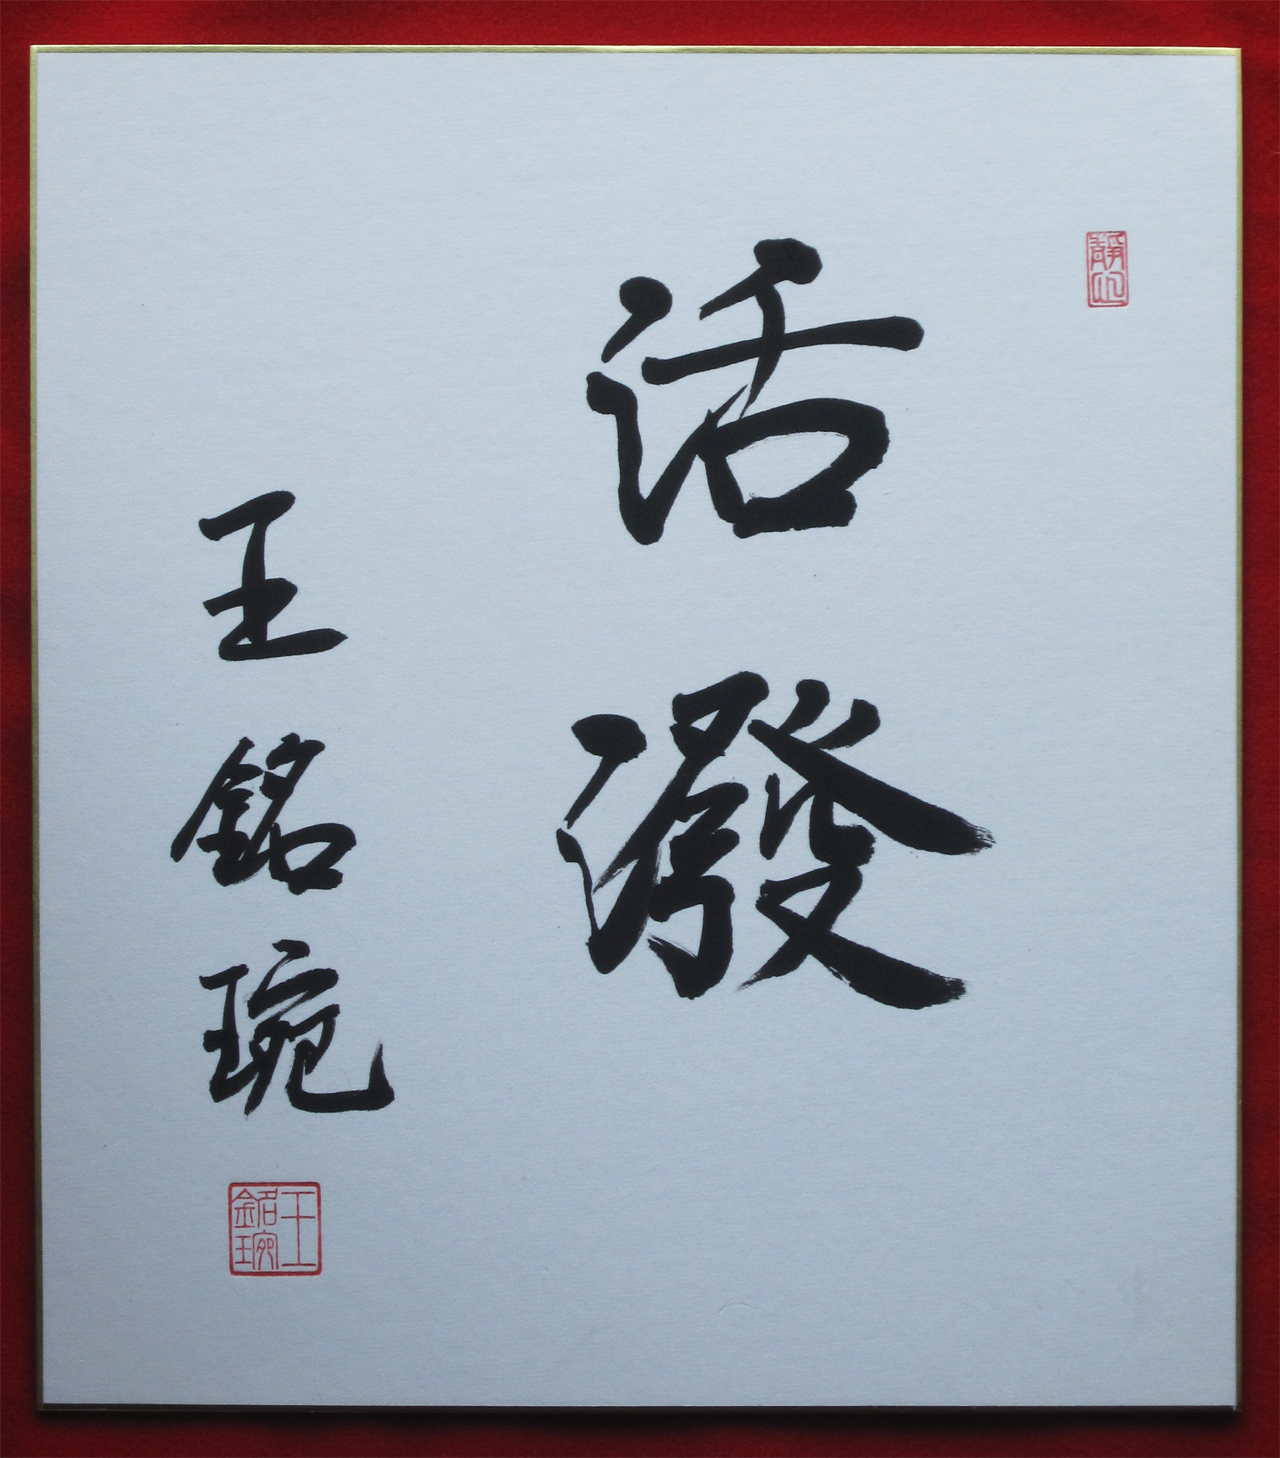 活潑
王銘琬
王銘琬